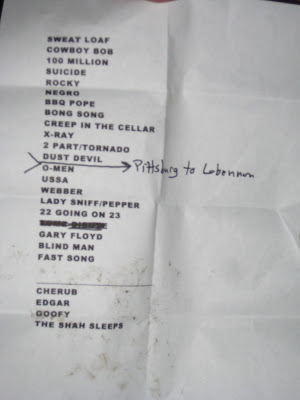 SWEAT LOAF
COWBOY BOB
100 MILLION
SUICIDE
ROCKY
NEGRO
BBQ POPE
BONG SONG
CREEP IN THE CELLAR
X-RAY
2 PART/TORNADO
DUST DEVIL
Pittsburg to Lebennon
O-MEN
USSA
WEBBER
LADY SNIFF/PEPPER
22 GOING ON 23
GARY FLOYD
BLIND MAN
FAST SONG
CHERUB
EDGAR
GOOFY
THE SHAH SLEEPS